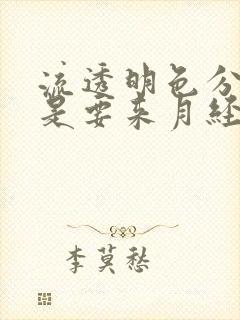 流透明色分
是要来月经
李莫愁